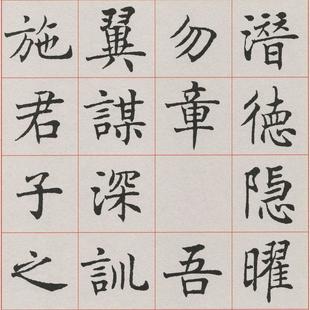 潛德隐曜
勿章吾
翼謀深訓
施君子之